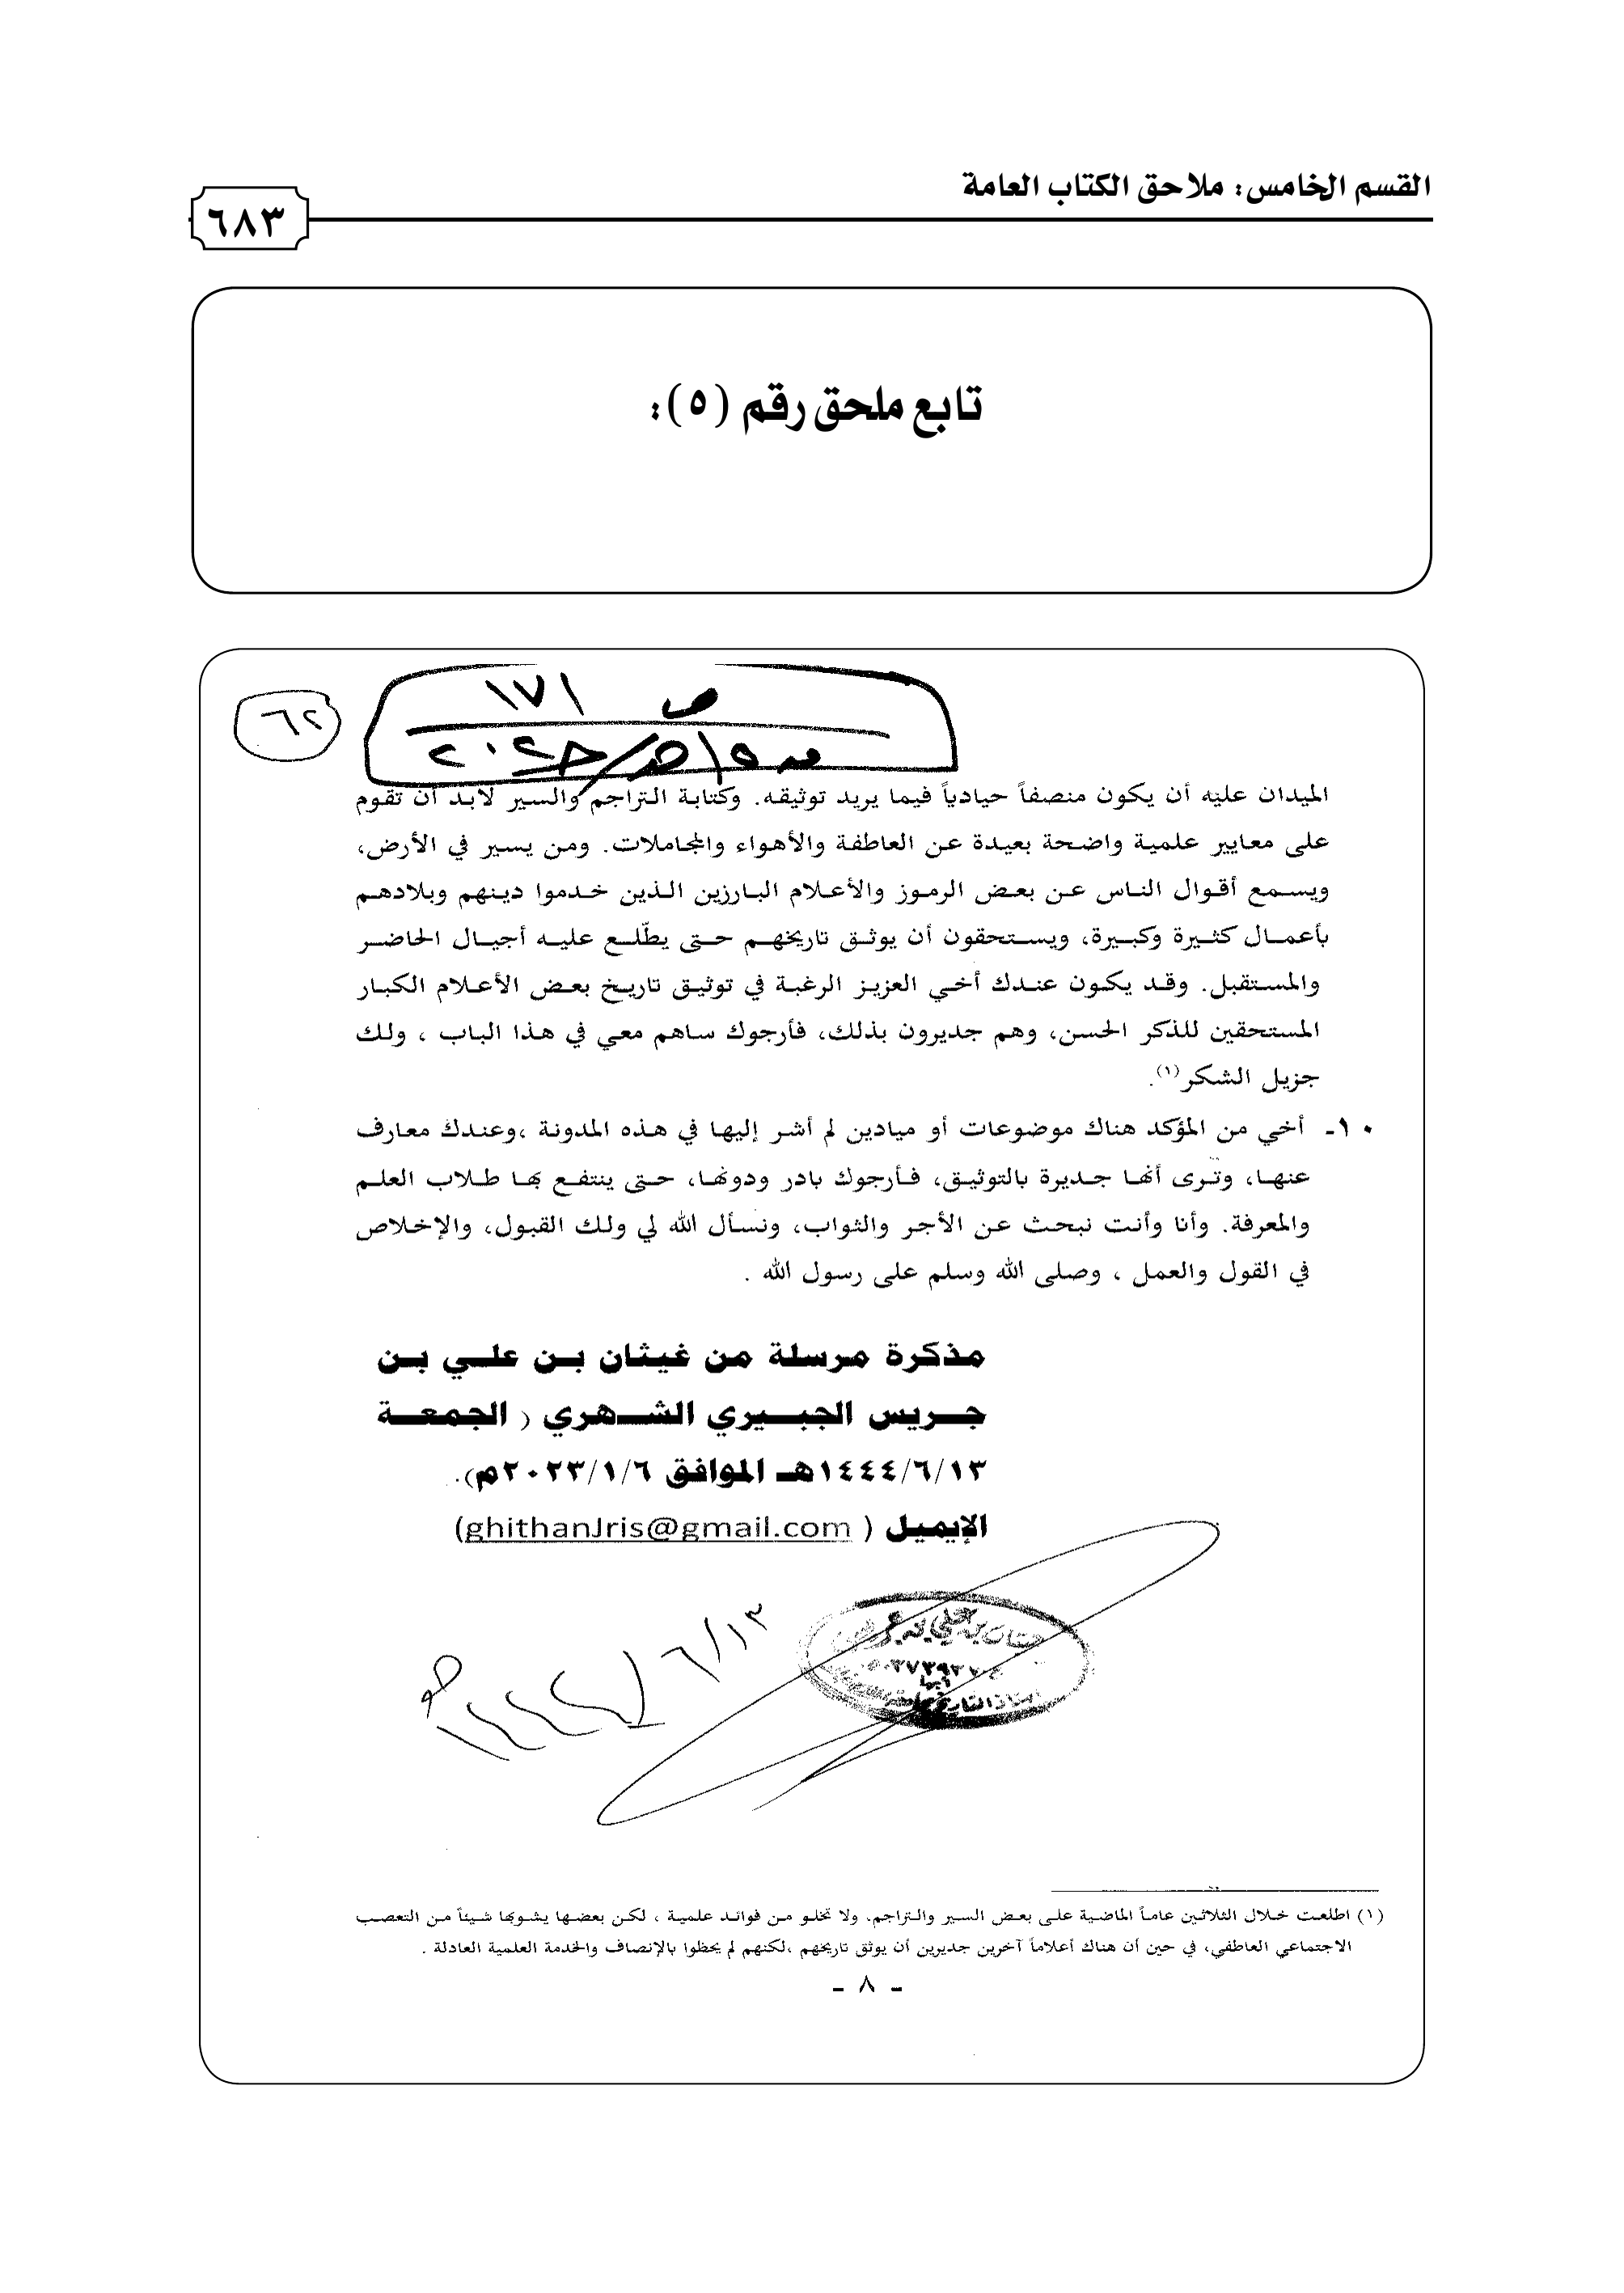 القسم الخامس: ملاحق الكتاب العامة
٦٨٣
تابع ملحق رقم (٥):
ص ١٧١
٦٢
الميدان عليه أن يكون منصفاً حيادياً فيما يريد توثيقه. وكتابة التراجم والسير لابد أن تقوم
على معايير علمية واضحة بعيدة عن العاطفة والأهواء والمجاملات. ومن يسير في الأرض،
ويسمع أقوال الناس عن بعض الرموز والأعلام البارزين الذين خدموا دينهم وبلادهم
بأعمال كثيرة وكبيرة، ويستحقون أن يوثق تاريخهم حتى يطّلع عليه أجيال الحاضر
والمستقبل. وقد يكون عندك أخي العزيز الرغبة في توثيق تاريخ بعض الأعلام الكبار
المستحقين للذكر الحسن، وهم جديرون بذلك، فأرجوك ساهم معي في هذا الباب ، ولك
جزيل الشكر(١).
١٠- أخي من المؤكد هناك موضوعات أو ميادين لم أشر إليها في هذه المدونة ،وعندك معارف
عنها، وترى أنها جديرة بالتوثيق، فأرجوك بادر ودونها، حتى ينتفع بها طلاب العلم
والمعرفة. وأنا وأنت نبحث عن الأجر والثواب، ونسأل الله لي ولك القبول، والإخلاص
في القول والعمل ، وصلى الله وسلم على رسول الله .
مذكرة مرسلة من غيثان بن علي بن
جريس الجبيري الشهري ( الجمعة
١٤٤٤/٦/١٣هـ الموافق ٢٠٢٣/١/٦م).
الإيميل ( ghithanJris@gmail.com)
١٤٤٤/٦/١٣هـ
(١) اطلعت خلال الثلاثين عاماً الماضية على بعض السير والتراجم، ولا تخلو من فوائد علمية ، لكن بعضها يشوبها شيئاً من التعصب
الاجتماعي العاطفي، في حين أن هناك أعلاماً آخرين جديرين أن يوثق تاريخهم ،لكنهم لم يحظوا بالإنصاف والخدمة العلمية العادلة .
- ٨ -